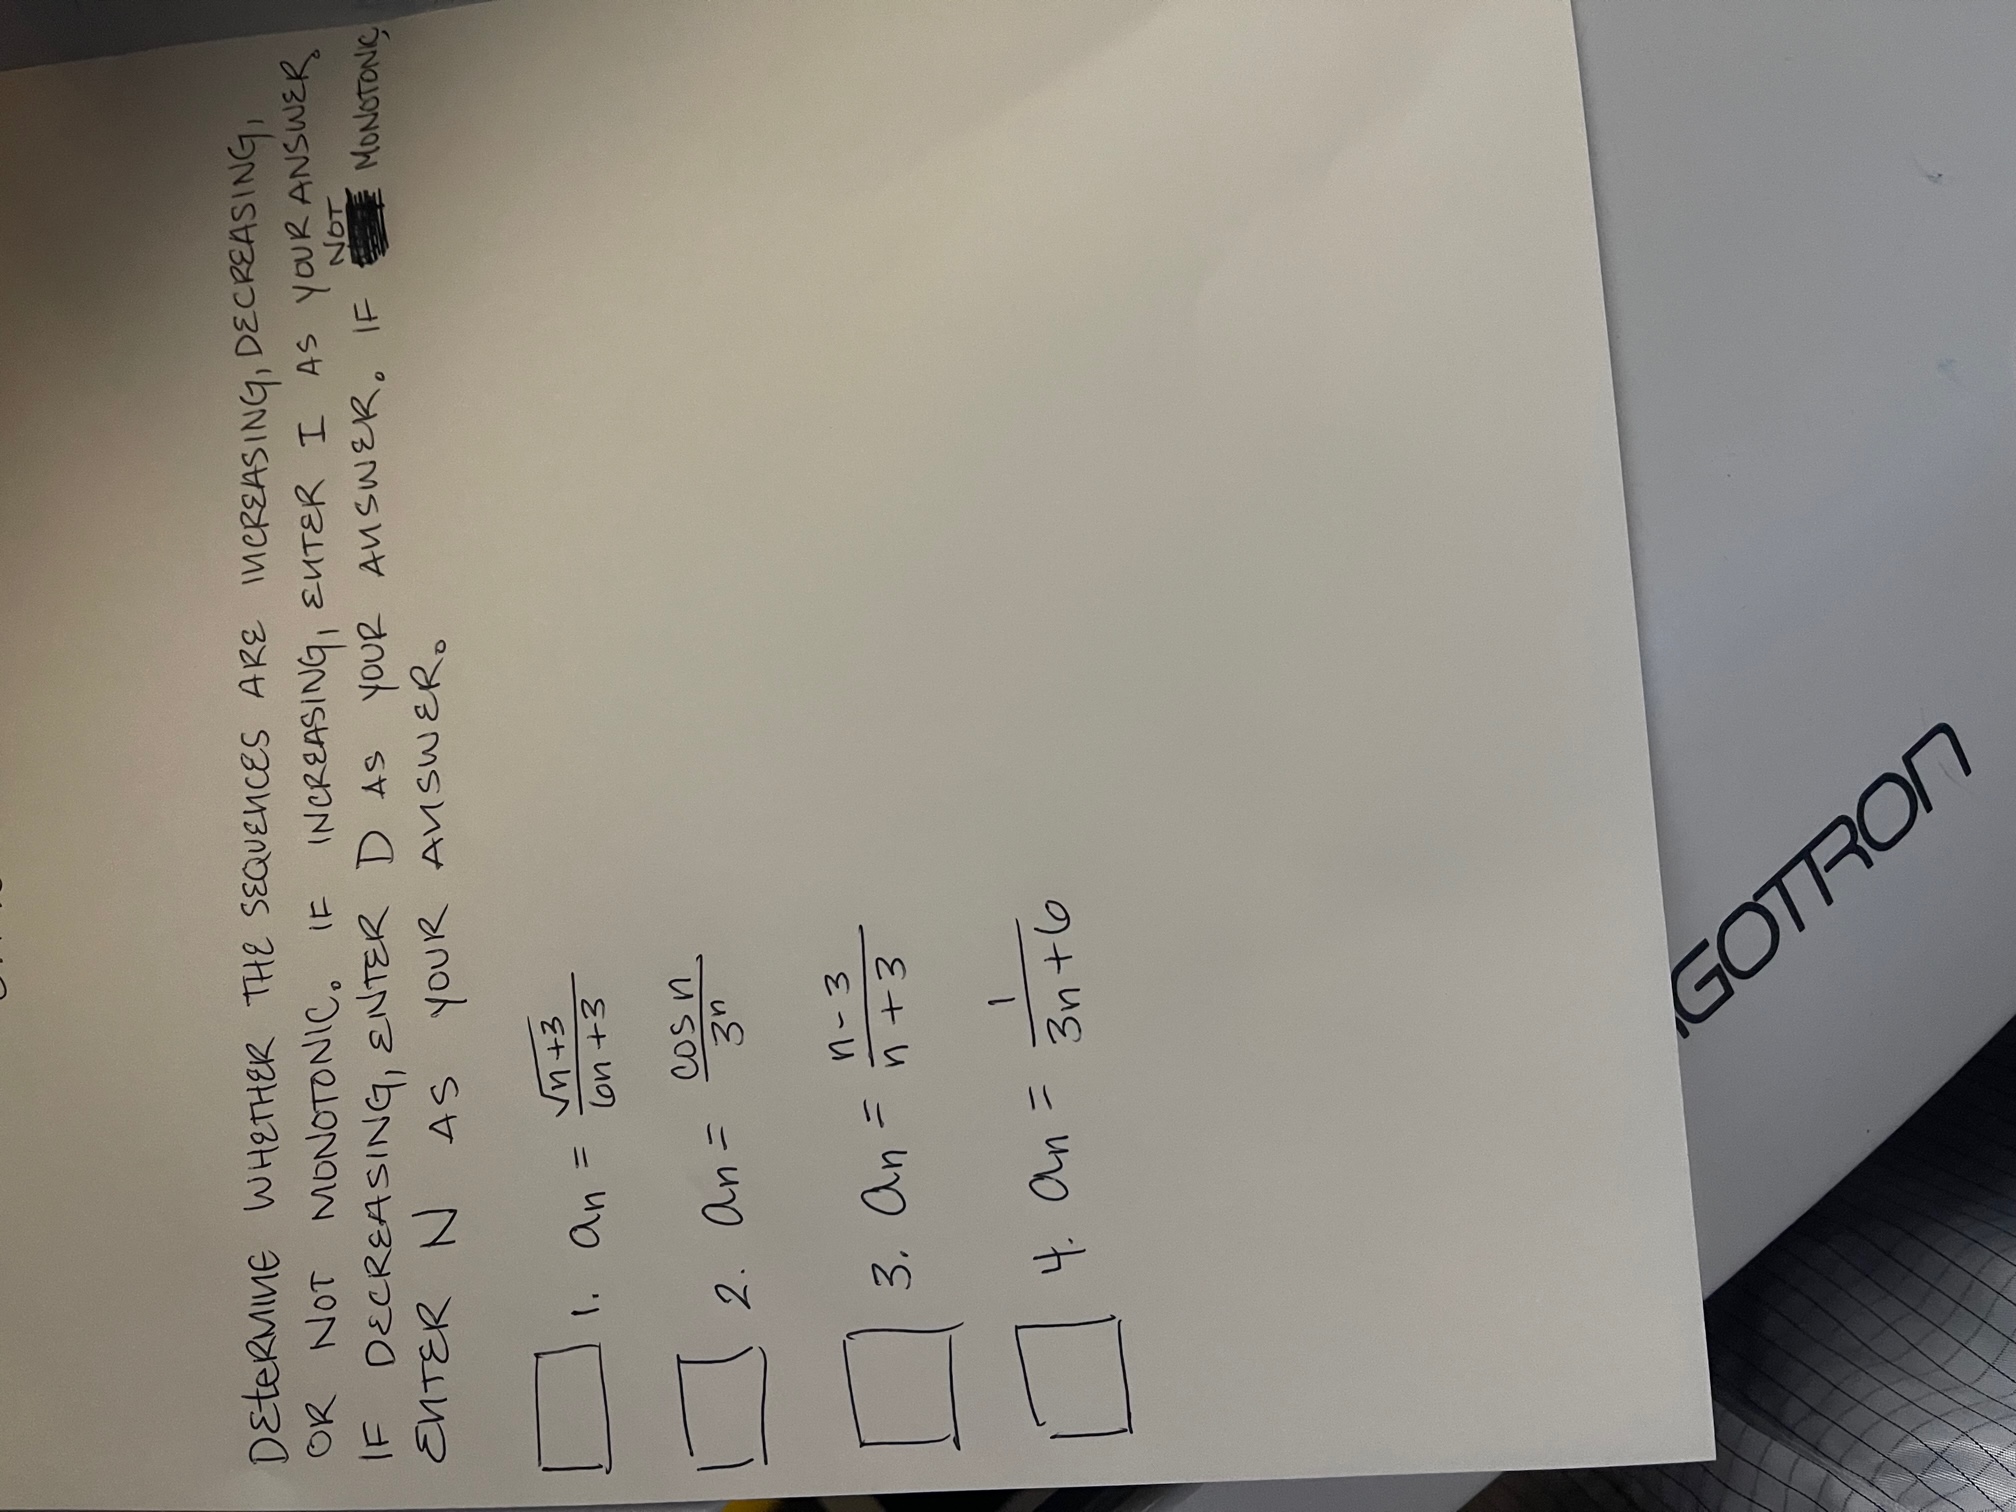 DETERMINE WHETHER THE SEQUENCES ARE INCREASING, DECREASING,
OR NOT MONOTONIC. IF INCREASING, ENTER I AS YOUR ANSWER.
IF DECREASING, ENTER D AS YOUR ANSWER. IF NOT MONOTONIC,
ENTER N AS YOUR ANSWER.
1. an = √n+3 / 6n+3
2. an = cos n / 3ⁿ
3. an = n-3 / n+3
4. an = 1 / 3n+6
GOTRON